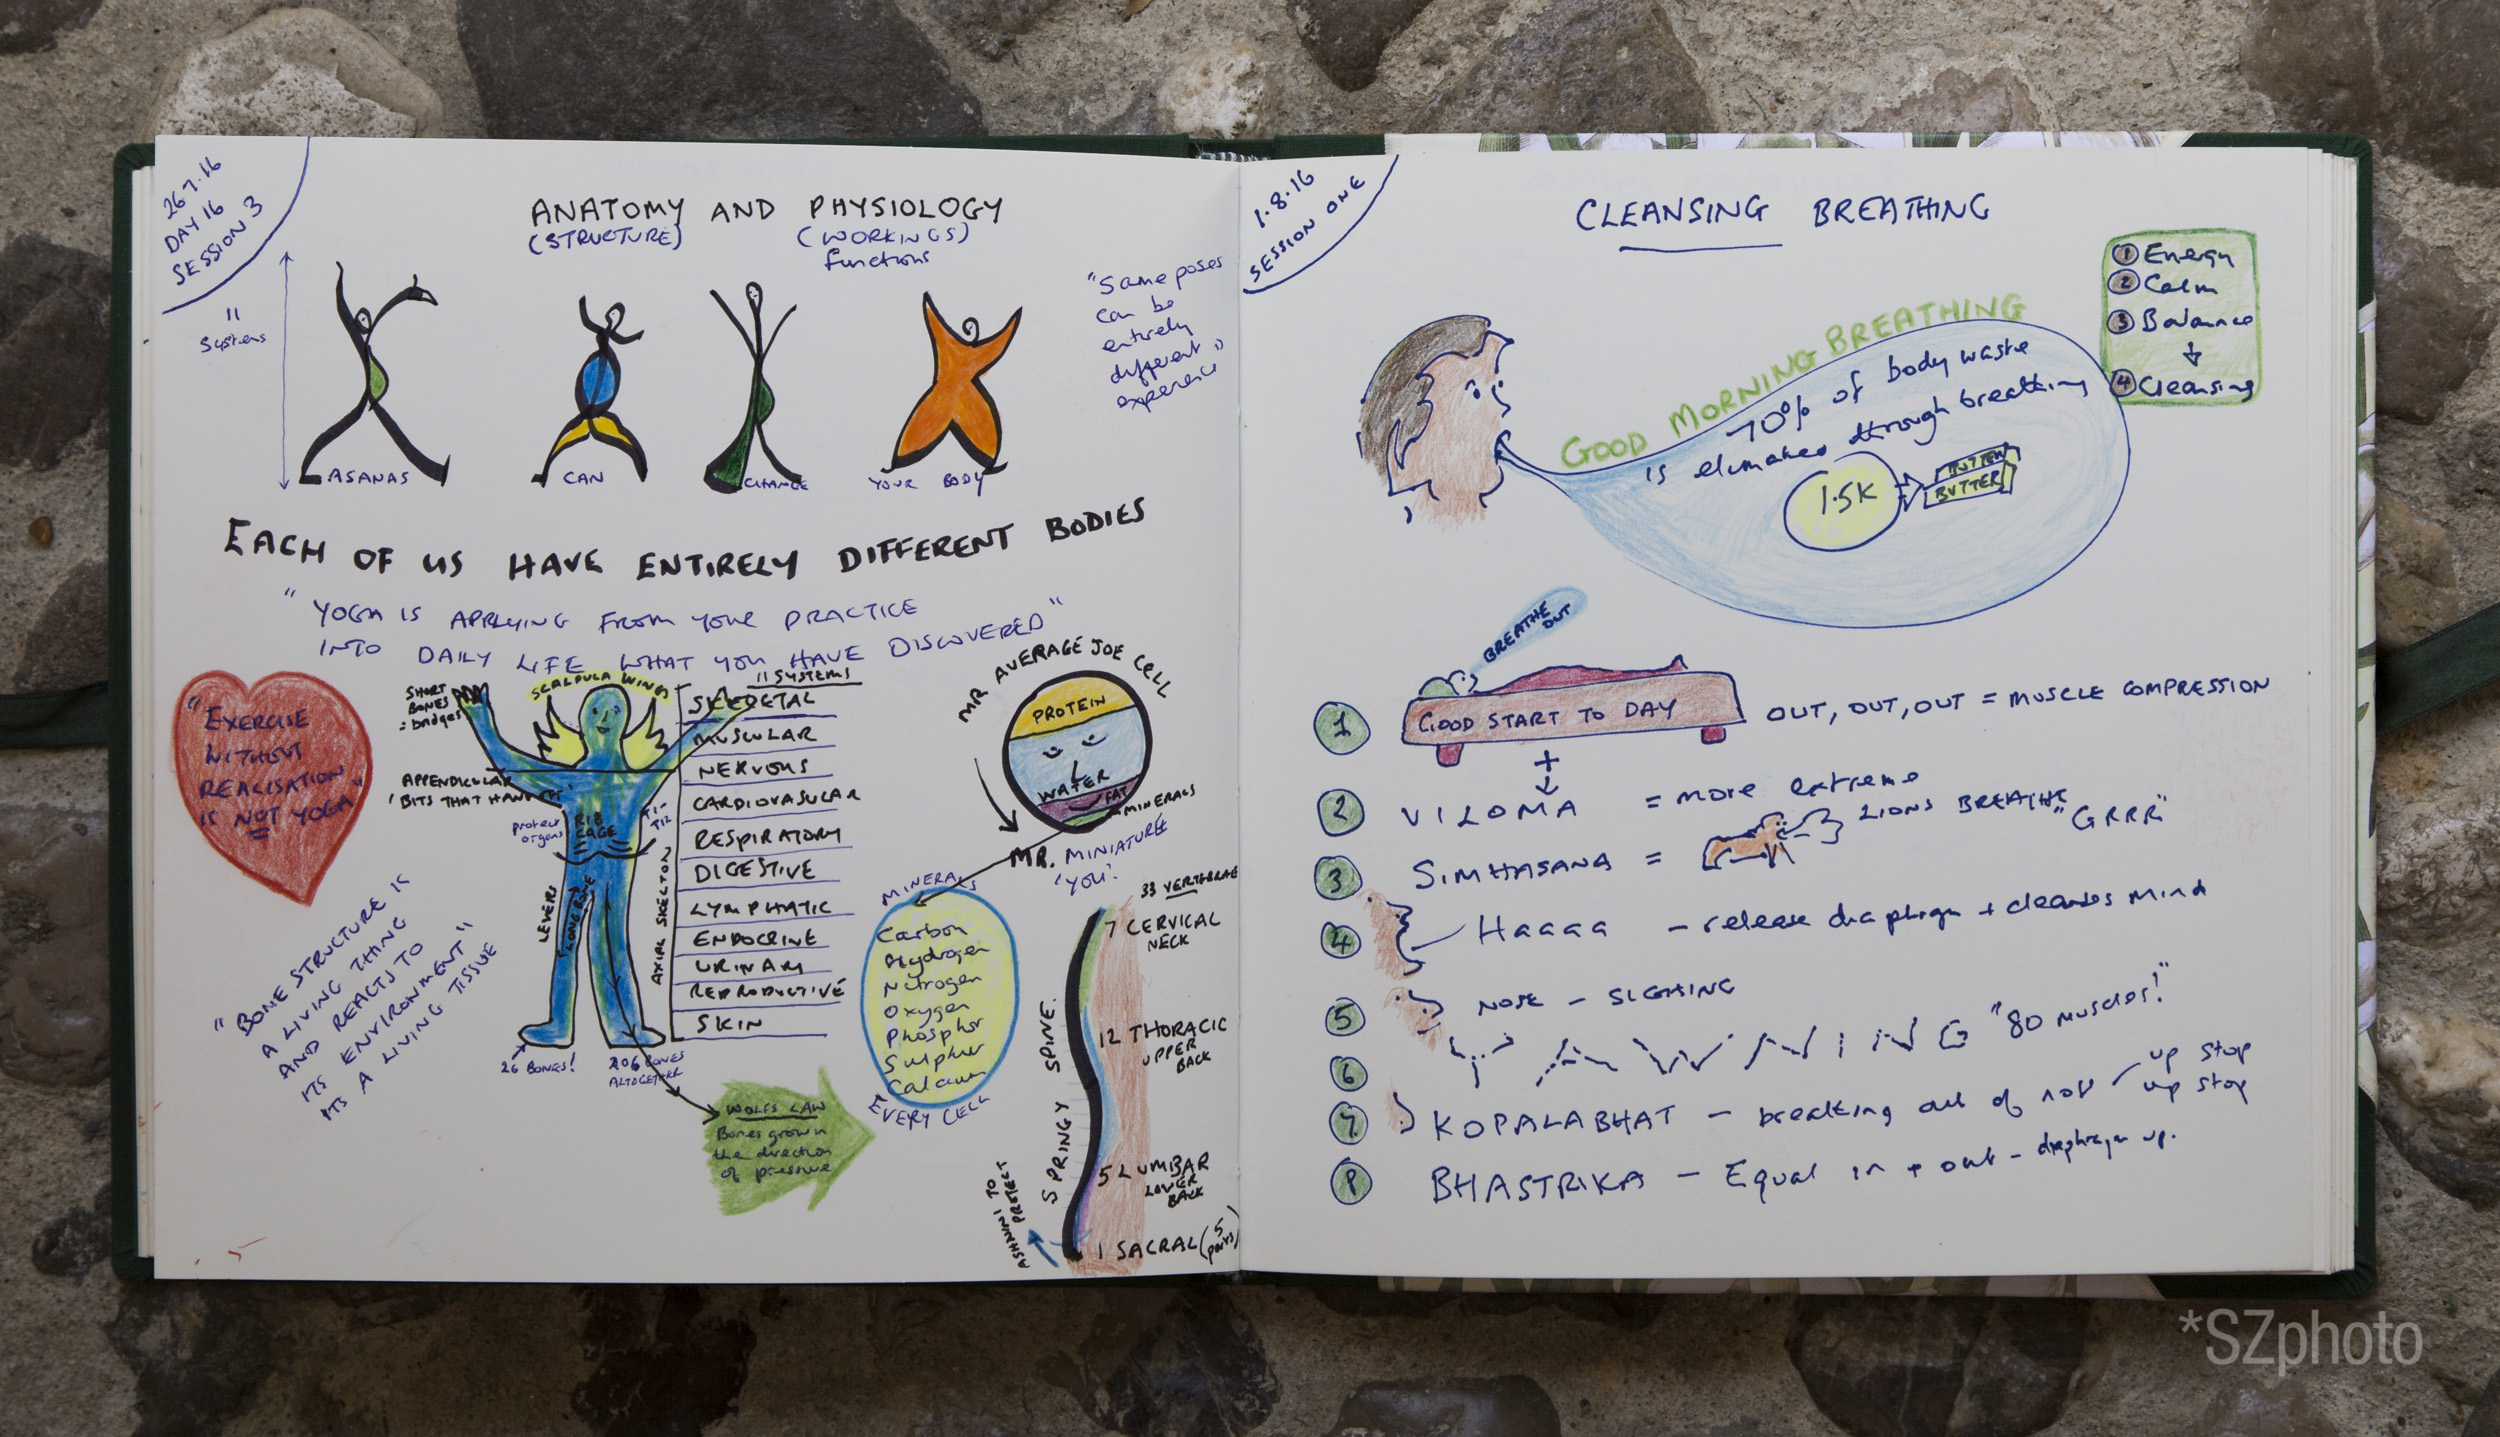 26.7.16
DAY 16
SESSION 3
ANATOMY AND PHYSIOLOGY
(STRUCTURE) (WORKINGS)
functions
11
Systems
"Same poses
can be
entirely
different"
experience
ASANAS CAN CHANGE YOUR BODY
EACH OF US HAVE ENTIRELY DIFFERENT BODIES
"YOGA IS APPLYING FROM YOUR PRACTICE
INTO DAILY LIFE WHAT YOU HAVE DISCOVERED"
"EXERCISE
WITHOUT
REALISATION
IS NOT YOGA"
SHORT
BONES
= bridges
SCALPULA WING
APPENDICULAR
'BITS THAT HANG OFF'
protects
organs
RIB
CAGE
T1-
T12
LEVERS
LONG BONE
AXIAL SKELTON
26 BONES!
206 BONES
ALTOGETHER
11 SYSTEMS
SKELETAL
MUSCULAR
NERVOUS
CARDIOVASULAR
RESPIRATORY
DIGESTIVE
LYMPHATIC
ENDOCRINE
URINARY
REPRODUCTIVE
SKIN
"BONE STRUCTURE IS
A LIVING THING
AND REACTS TO
ITS ENVIRONMENT"
ITS A LIVING TISSUE
WOLFS LAW
Bones grow in
the direction
of pressure
MR AVERAGE JOE CELL
PROTEIN
WATER
FAT
MINERALS
MR. MINIATURE
'YOU'.
MINERALS
Carbon
Hydrogen
Nitrogen
Oxygen
Phosphor
Sulphur
Calcium
EVERY CELL
33 VERTEBRAE
7 CERVICAL
NECK
12 THORACIC
UPPER
BACK
5 LUMBAR
LOWER
BACK
1 SACRAL (5
pairs)
SPRINGY SPINE.
ASHWINI TO
PROTECT
1.8.16
SESSION ONE
CLEANSING BREATHING
1 Energy
2 Calm
3 Balance
4 Cleansing
GOOD MORNING BREATHING
70% of body waste
is elimated through breathing
1.5K
BUTTER
BUTTER
BREATHE
OUT
1 GOOD START TO DAY OUT, OUT, OUT = MUSCLE COMPRESSION
+
2 VILOMA = more extreme
3 SIMHASANA = LIONS BREATHE "GRRR"
4 Haaaa - release diaphragm + cleanses mind
5 NOSE - SIGHING
6 YAWNING "80 MUSCLES!"
7 KOPALABHAT - breathing out of nose up stop
up stop
8 BHASTRIKA - Equal in + out - diaphragm up.
*SZphoto